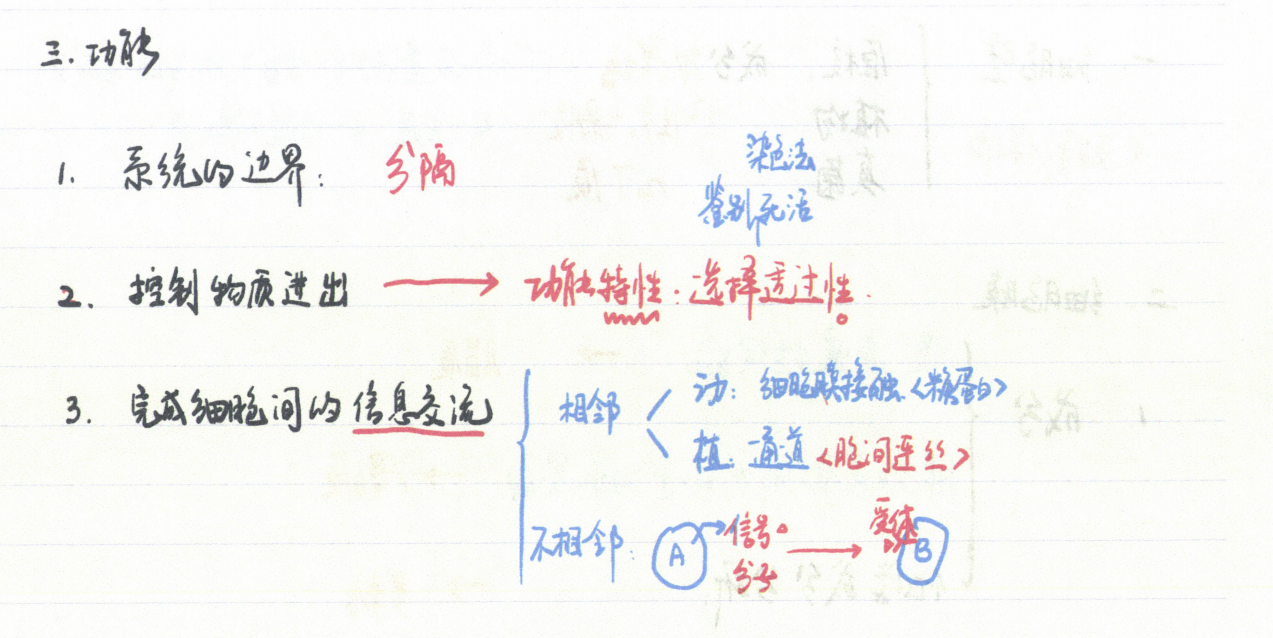 三.功能
1. 系统的边界: 分隔
染色法
鉴别死活
2. 控制物质进出 → 功能特性:选择透过性.
3. 完成细胞间的信息交流
相邻
动: 细胞膜接触<糖蛋白>
植: 通道<胞间连丝>
不相邻: A → 信号分子 → 受体 B